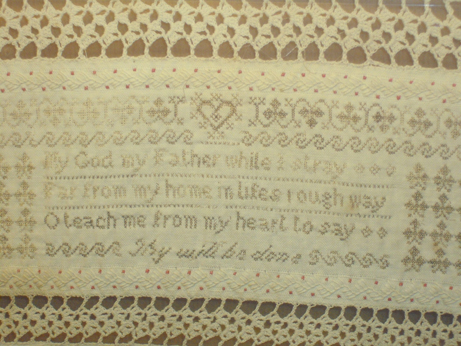 My God my Father while I stray
Far from my home in lifes rough way
O teach me from my heart to say
Thy will be done